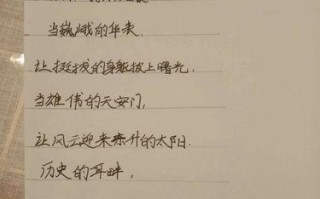 当巍峨的华表，
让挺拔的身躯披上曙光，
当雄伟的天安门，
让风云迎来东升的太阳.
历史的耳畔，